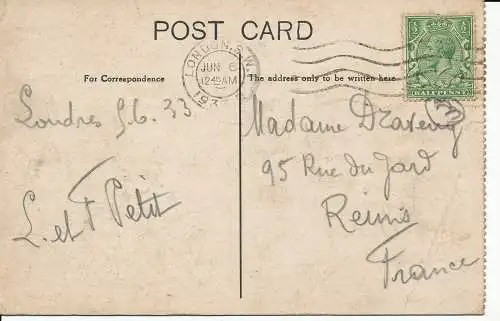 POST CARD
LONDON. S.W.
JUN 6
12 45 AM
193
For Correspondence
The address only to be written here
HALFPENNY
Londres 5.6.33
L. et F Petit
Madame
95 Rue du Jard
Reims
France